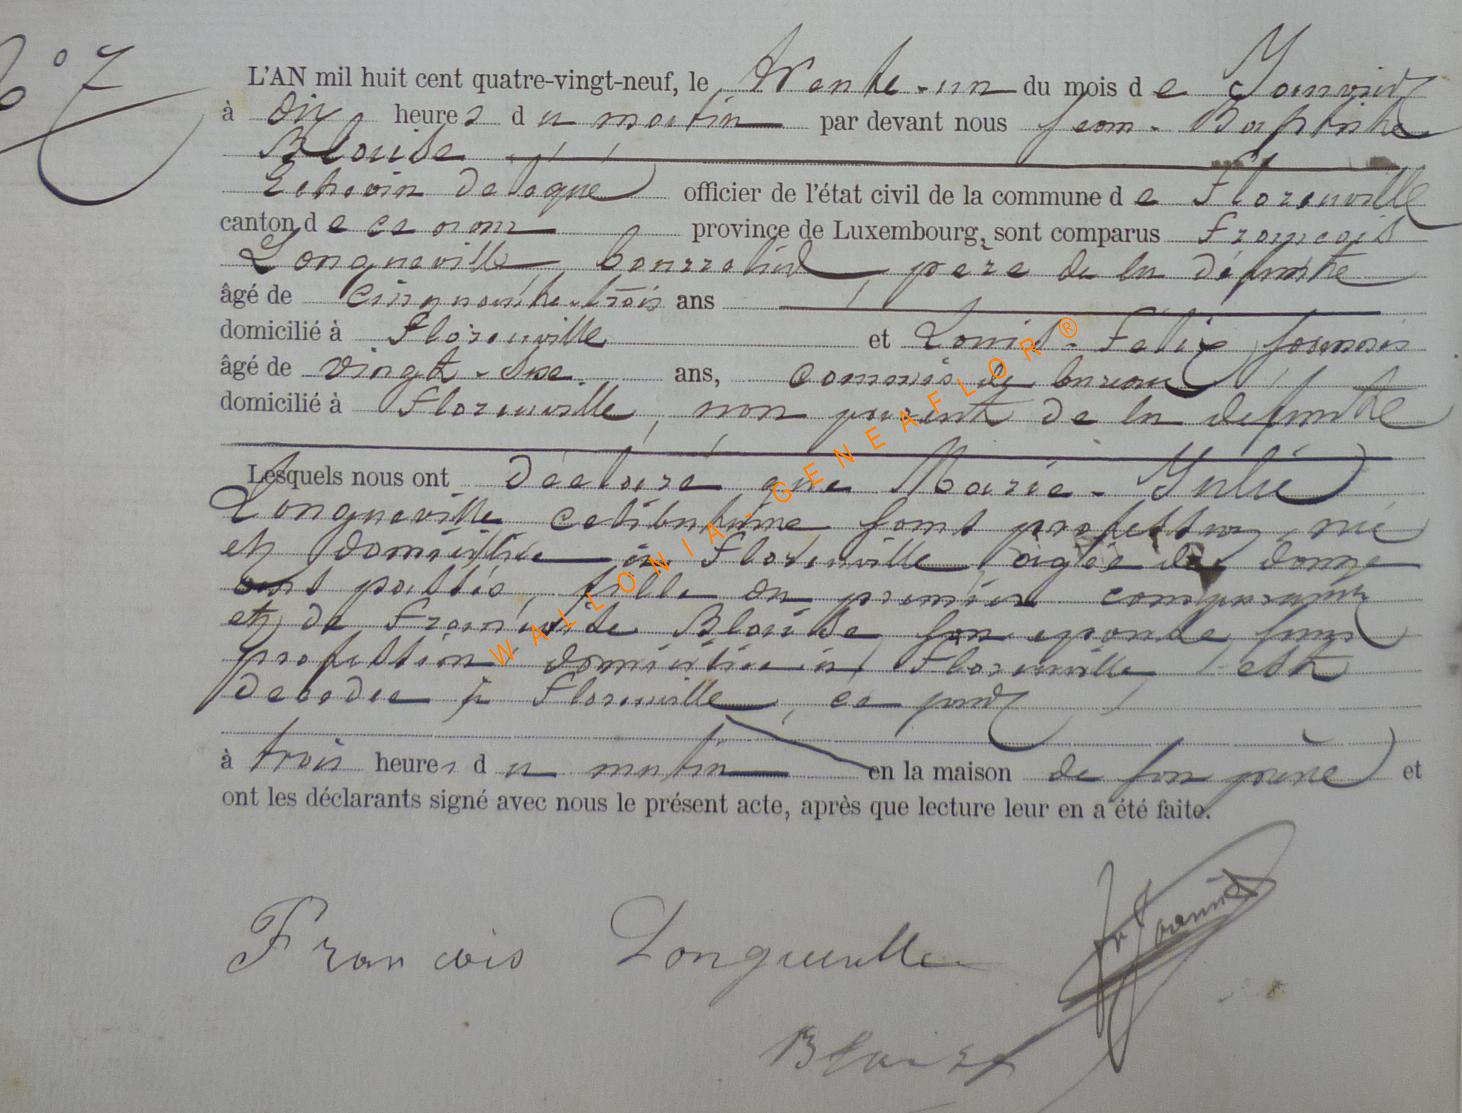 N° 7
L'AN mil huit cent quatre-vingt-neuf, le trente-un du mois de Janvier
à dix heures du matin par devant nous Jean-Baptiste
Blaise
Echevin délégué officier de l'état civil de la commune de Florenville
canton de ce nom province de Luxembourg, sont comparus François
Longueville, bourrelier, père de la défunte
âgé de cinquante-trois ans
domicilié à Florenville et Louis-Félix
âgé de vingt-six ans, commis de bureau
domicilié à Florenville, non parent de la défunte
Lesquels nous ont déclaré que Marie-Julie
Longueville célibataire sans profession, née
et domiciliée à Florenville, âgée de douze
ans passés, fille du premier comparant
et de Françoise Blaise son épouse sans
profession domiciliée à Florenville, est
décédée à Florenville, ce jour
à trois heures du matin en la maison de son père et
ont les déclarants signé avec nous le présent acte, après que lecture leur en a été faite.
François Longueville
Blaise
WALLONIA-GENEAFLOR®